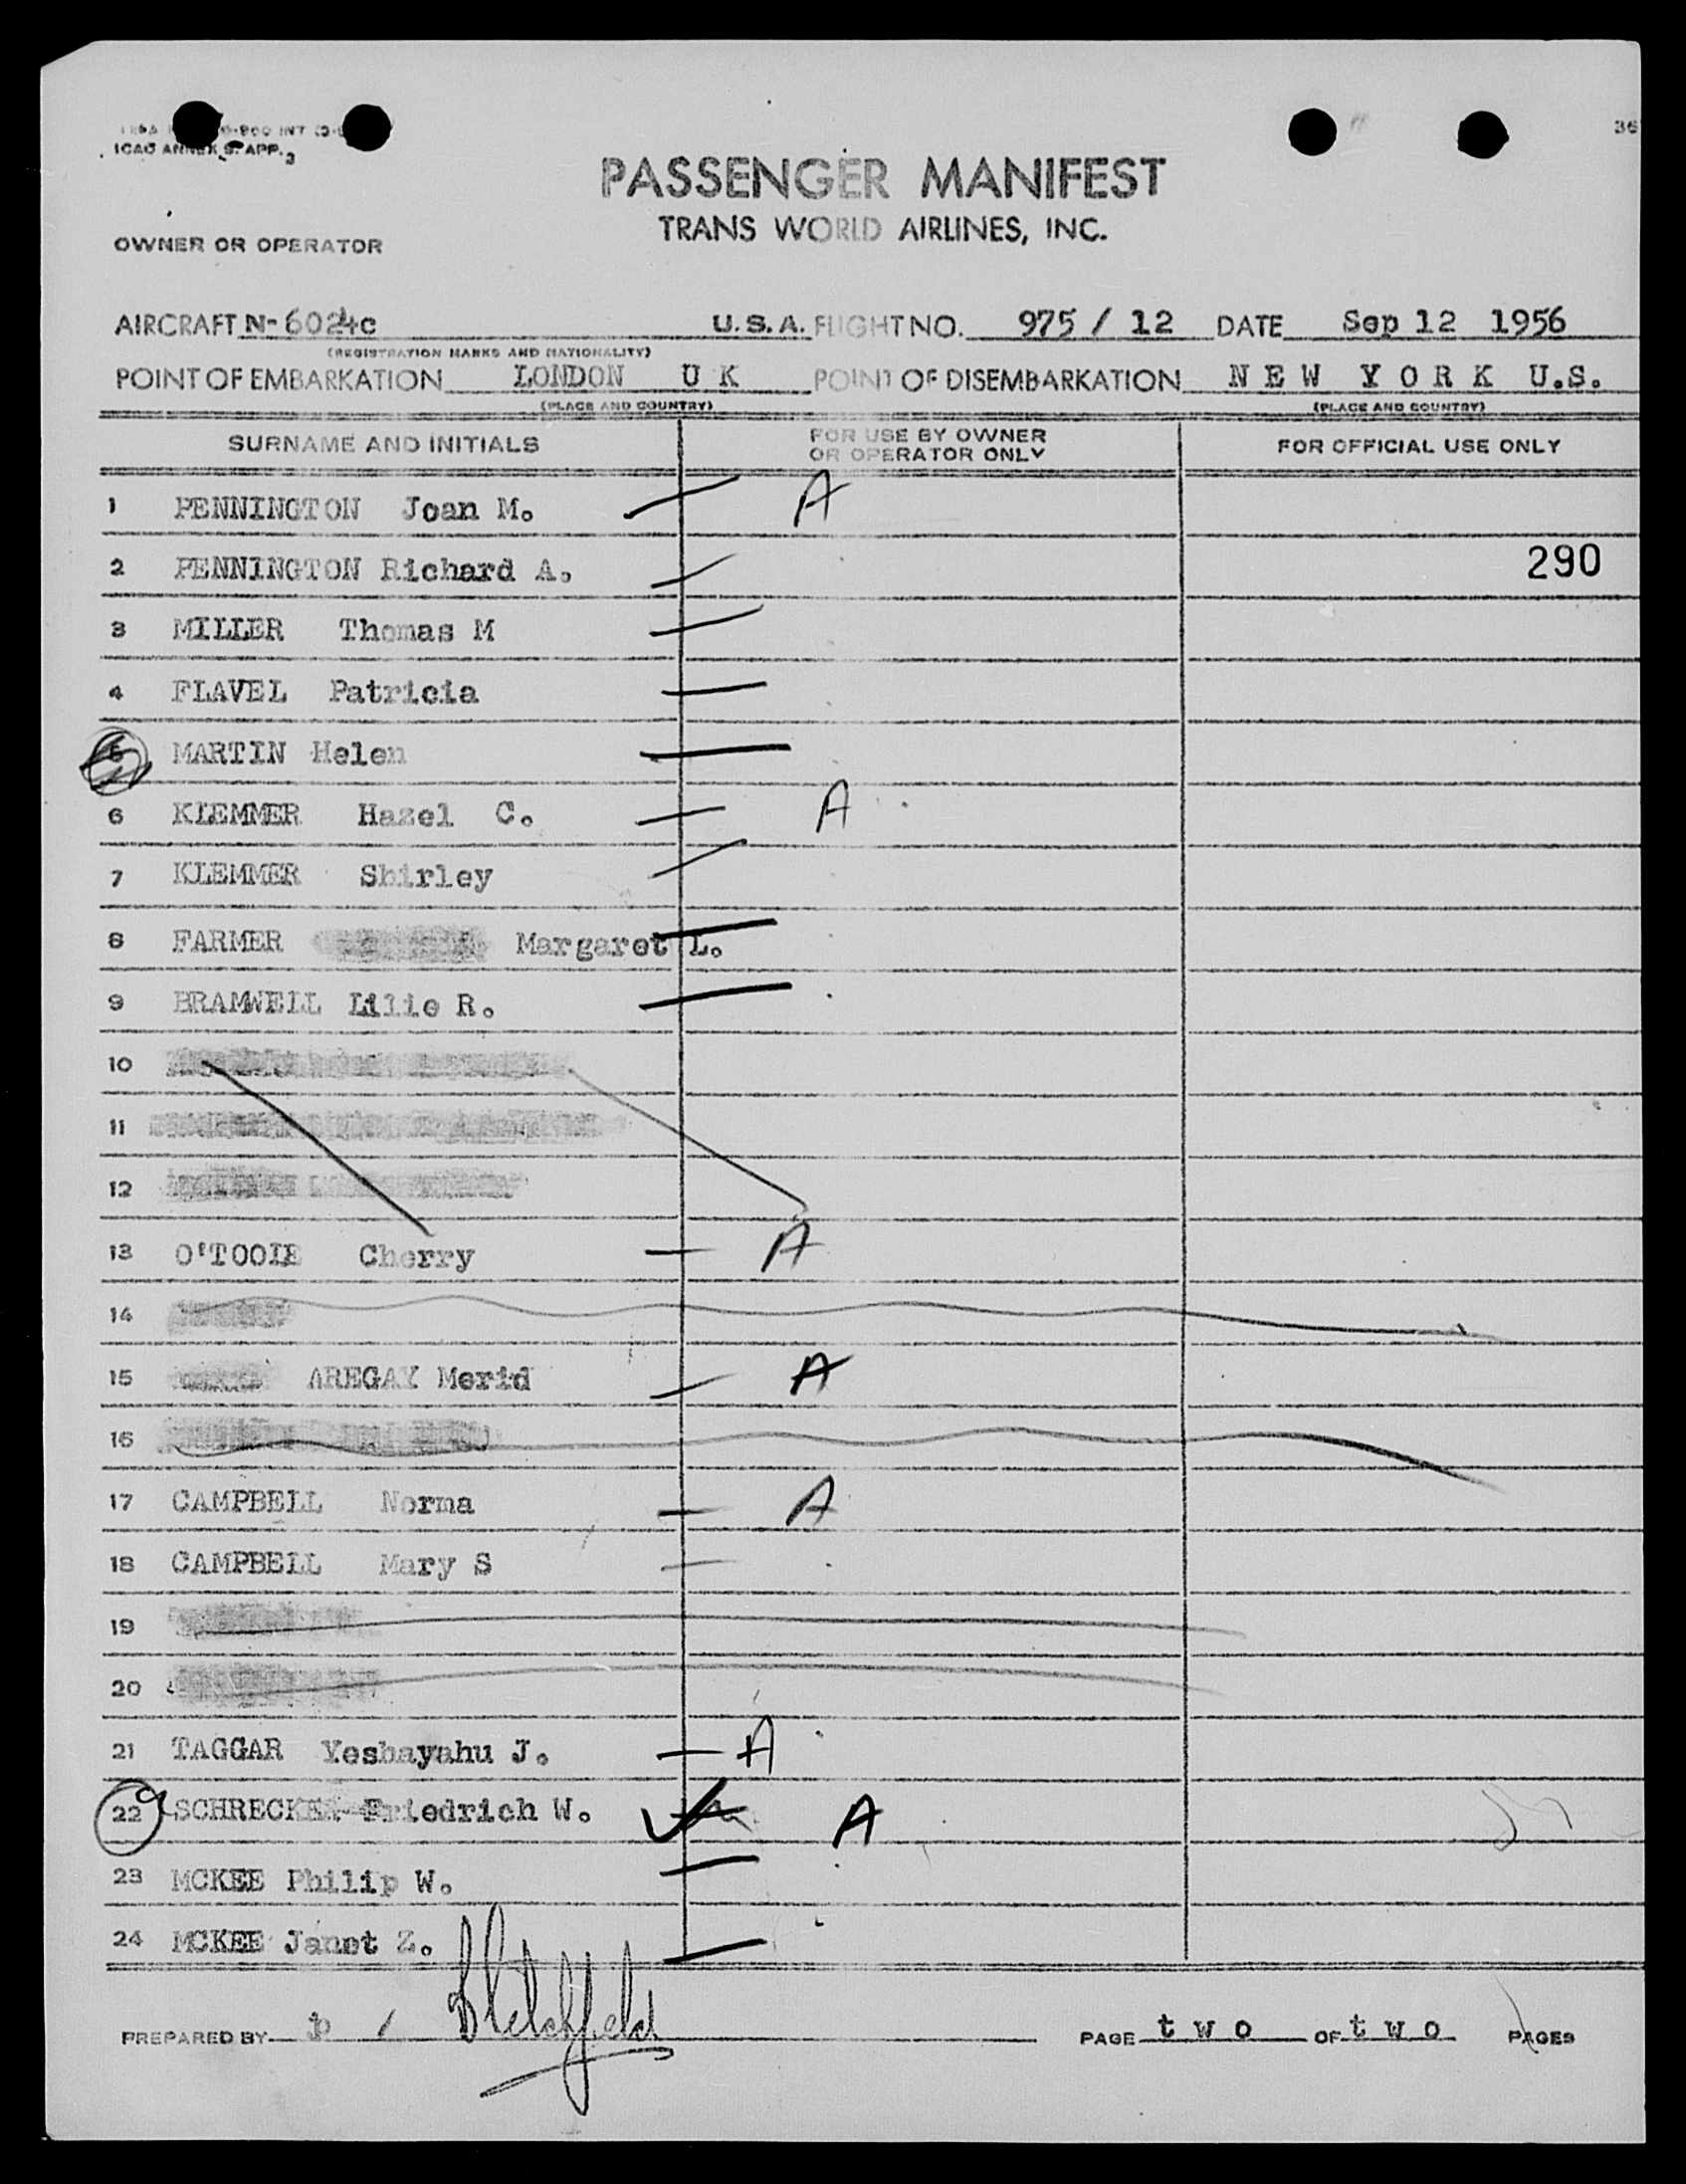 36
ICAO ANNEX 9. APP. 3
PASSENGER MANIFEST
TRANS WORLD AIRLINES, INC.
OWNER OR OPERATOR
AIRCRAFT N-6024c U.S.A. FLIGHT NO. 975 / 12 DATE Sep 12 1956
(REGISTRATION MARKS AND NATIONALITY)
POINT OF EMBARKATION LONDON U K POINT OF DISEMBARKATION N E W Y O R K U.S.
(PLACE AND COUNTRY) (PLACE AND COUNTRY)
SURNAME AND INITIALS FOR USE BY OWNER OR OPERATOR ONLY FOR OFFICIAL USE ONLY
1 PENNINGTON Joan M. A
2 PENNINGTON Richard A. 290
3 MILLER Thomas M
4 FLAVEL Patricia
5 MARTIN Helen
6 KLEMMER Hazel C. A
7 KLEMMER Shirley
8 FARMER Margaret L.
9 BRAMWELL Lilie R.
10
11
12
13 O'TOOLE Cherry A
14
15 AREGAY Merid A
16
17 CAMPBELL Norma A
18 CAMPBELL Mary S
19
20
21 TAGGAR Yeshayahu J. A
22 SCHRECKER Friedrich W. A
23 MCKEE Philip W.
24 MCKEE Janet Z.
PREPARED BY PAGE t w o OF t w o PAGES